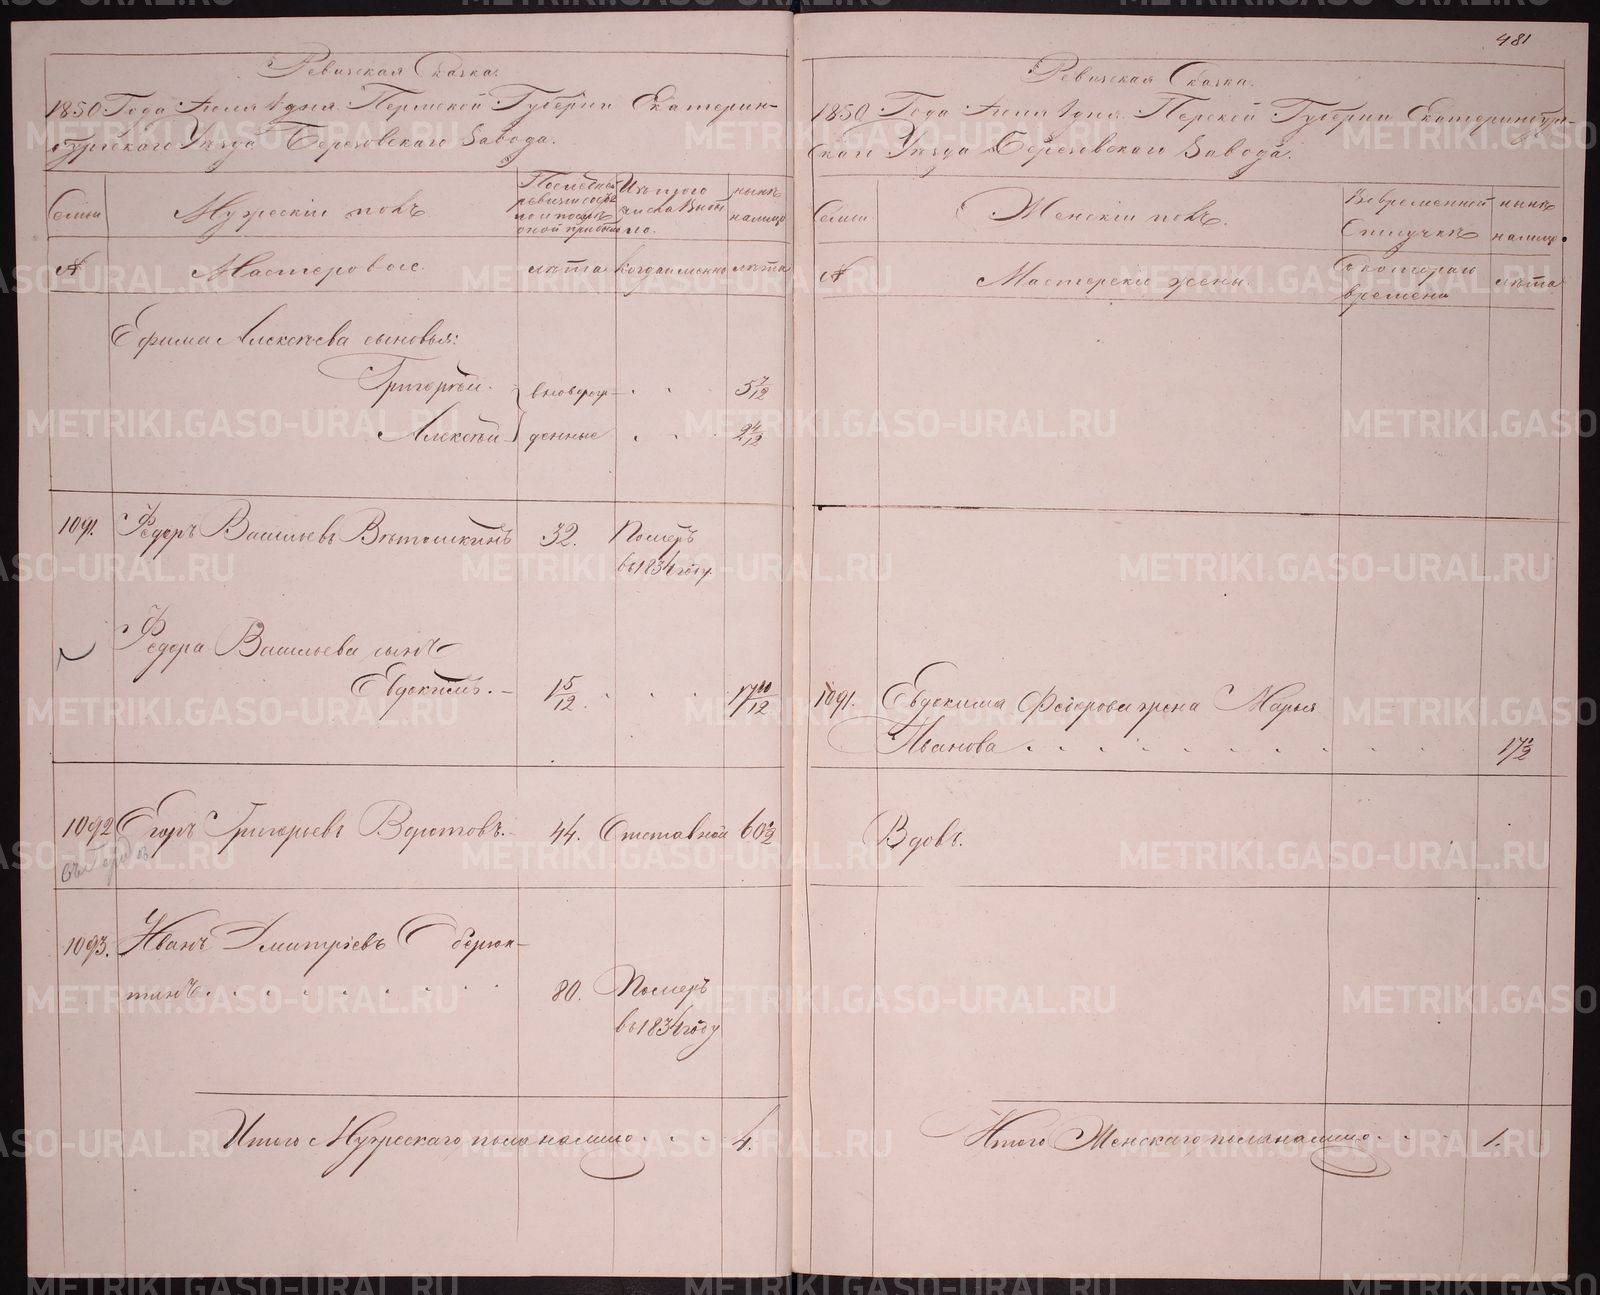 481
Ревизская Сказка.
1850 Года Июля 1 дня Пермской Губернии Екатерин-
бургскаго Уезда Березовскаго Завода.
Семьи
Мужескiй полъ
Последней ревизiи состояло и после оной прибыло
Изъ того числа выбыло.
ныне налицо
№
Мастеровые.
лета
когда именно
лета
Ефима Алексеева сыновья:
Григорей. вновь рож- 5 7/12
Алексей денные 2 4/12
1091. Федоръ Васильевъ Ветошкинъ 32. Померъ
въ 1834 году.
Федора Васильева сынъ
Евдокимъ. 1 5/12. 17 10/12
1092 Егоръ Григорьевъ Воротовъ. 44. Отставной 60 1/2
1093. Иванъ Дмитрiевъ
80. Померъ
въ 1834 году
Итого Мужескаго пола налицо 4.
Ревизская Сказка.
1850 Года Июля 1 дня Перской Губернии Екатеринбур-
скаго Уезда Березовскаго Завода.
Семьи
Женскiй полъ.
Во временной отлучке
ныне налицо.
№
Мастерски жены.
С котораго времени
лета
1091. Евдокима Федорова жена Марья
Иванова 17 1/2
Вдовъ.
Итого Женскаго пола налицо 1.
METRIKI.GASO-URAL.RU